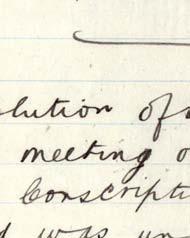 olution of
meeting o
Conscripti
d was un